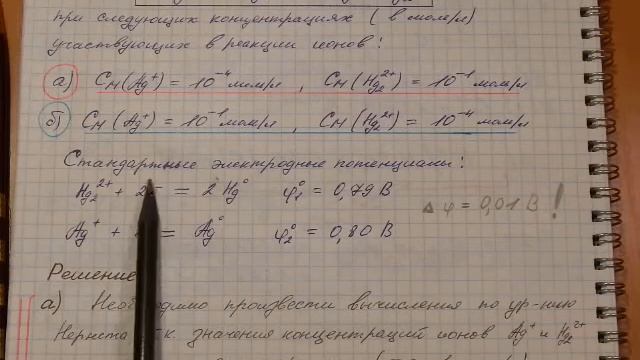 при следующих концентрациях (в моль/л)
участвующих в реакции ионов:
а) Cн(Ag⁺) = 10⁻⁴ моль/л, Cн(Hg₂²⁺) = 10⁻¹ моль/л
б) Cн(Ag⁺) = 10⁻¹ моль/л, Cн(Hg₂²⁺) = 10⁻⁴ моль/л
Стандартные электродные потенциалы:
Hg₂²⁺ + 2 = 2 Hg° φ₁° = 0,79 В
Δφ = 0,01 В !
Ag⁺ + = Ag° φ₂° = 0,80 В
Решение
а) Необходимо произвести вычисления по ур-нию
Нернста т.к. значения концентраций ионов Ag⁺ и Hg₂²⁺